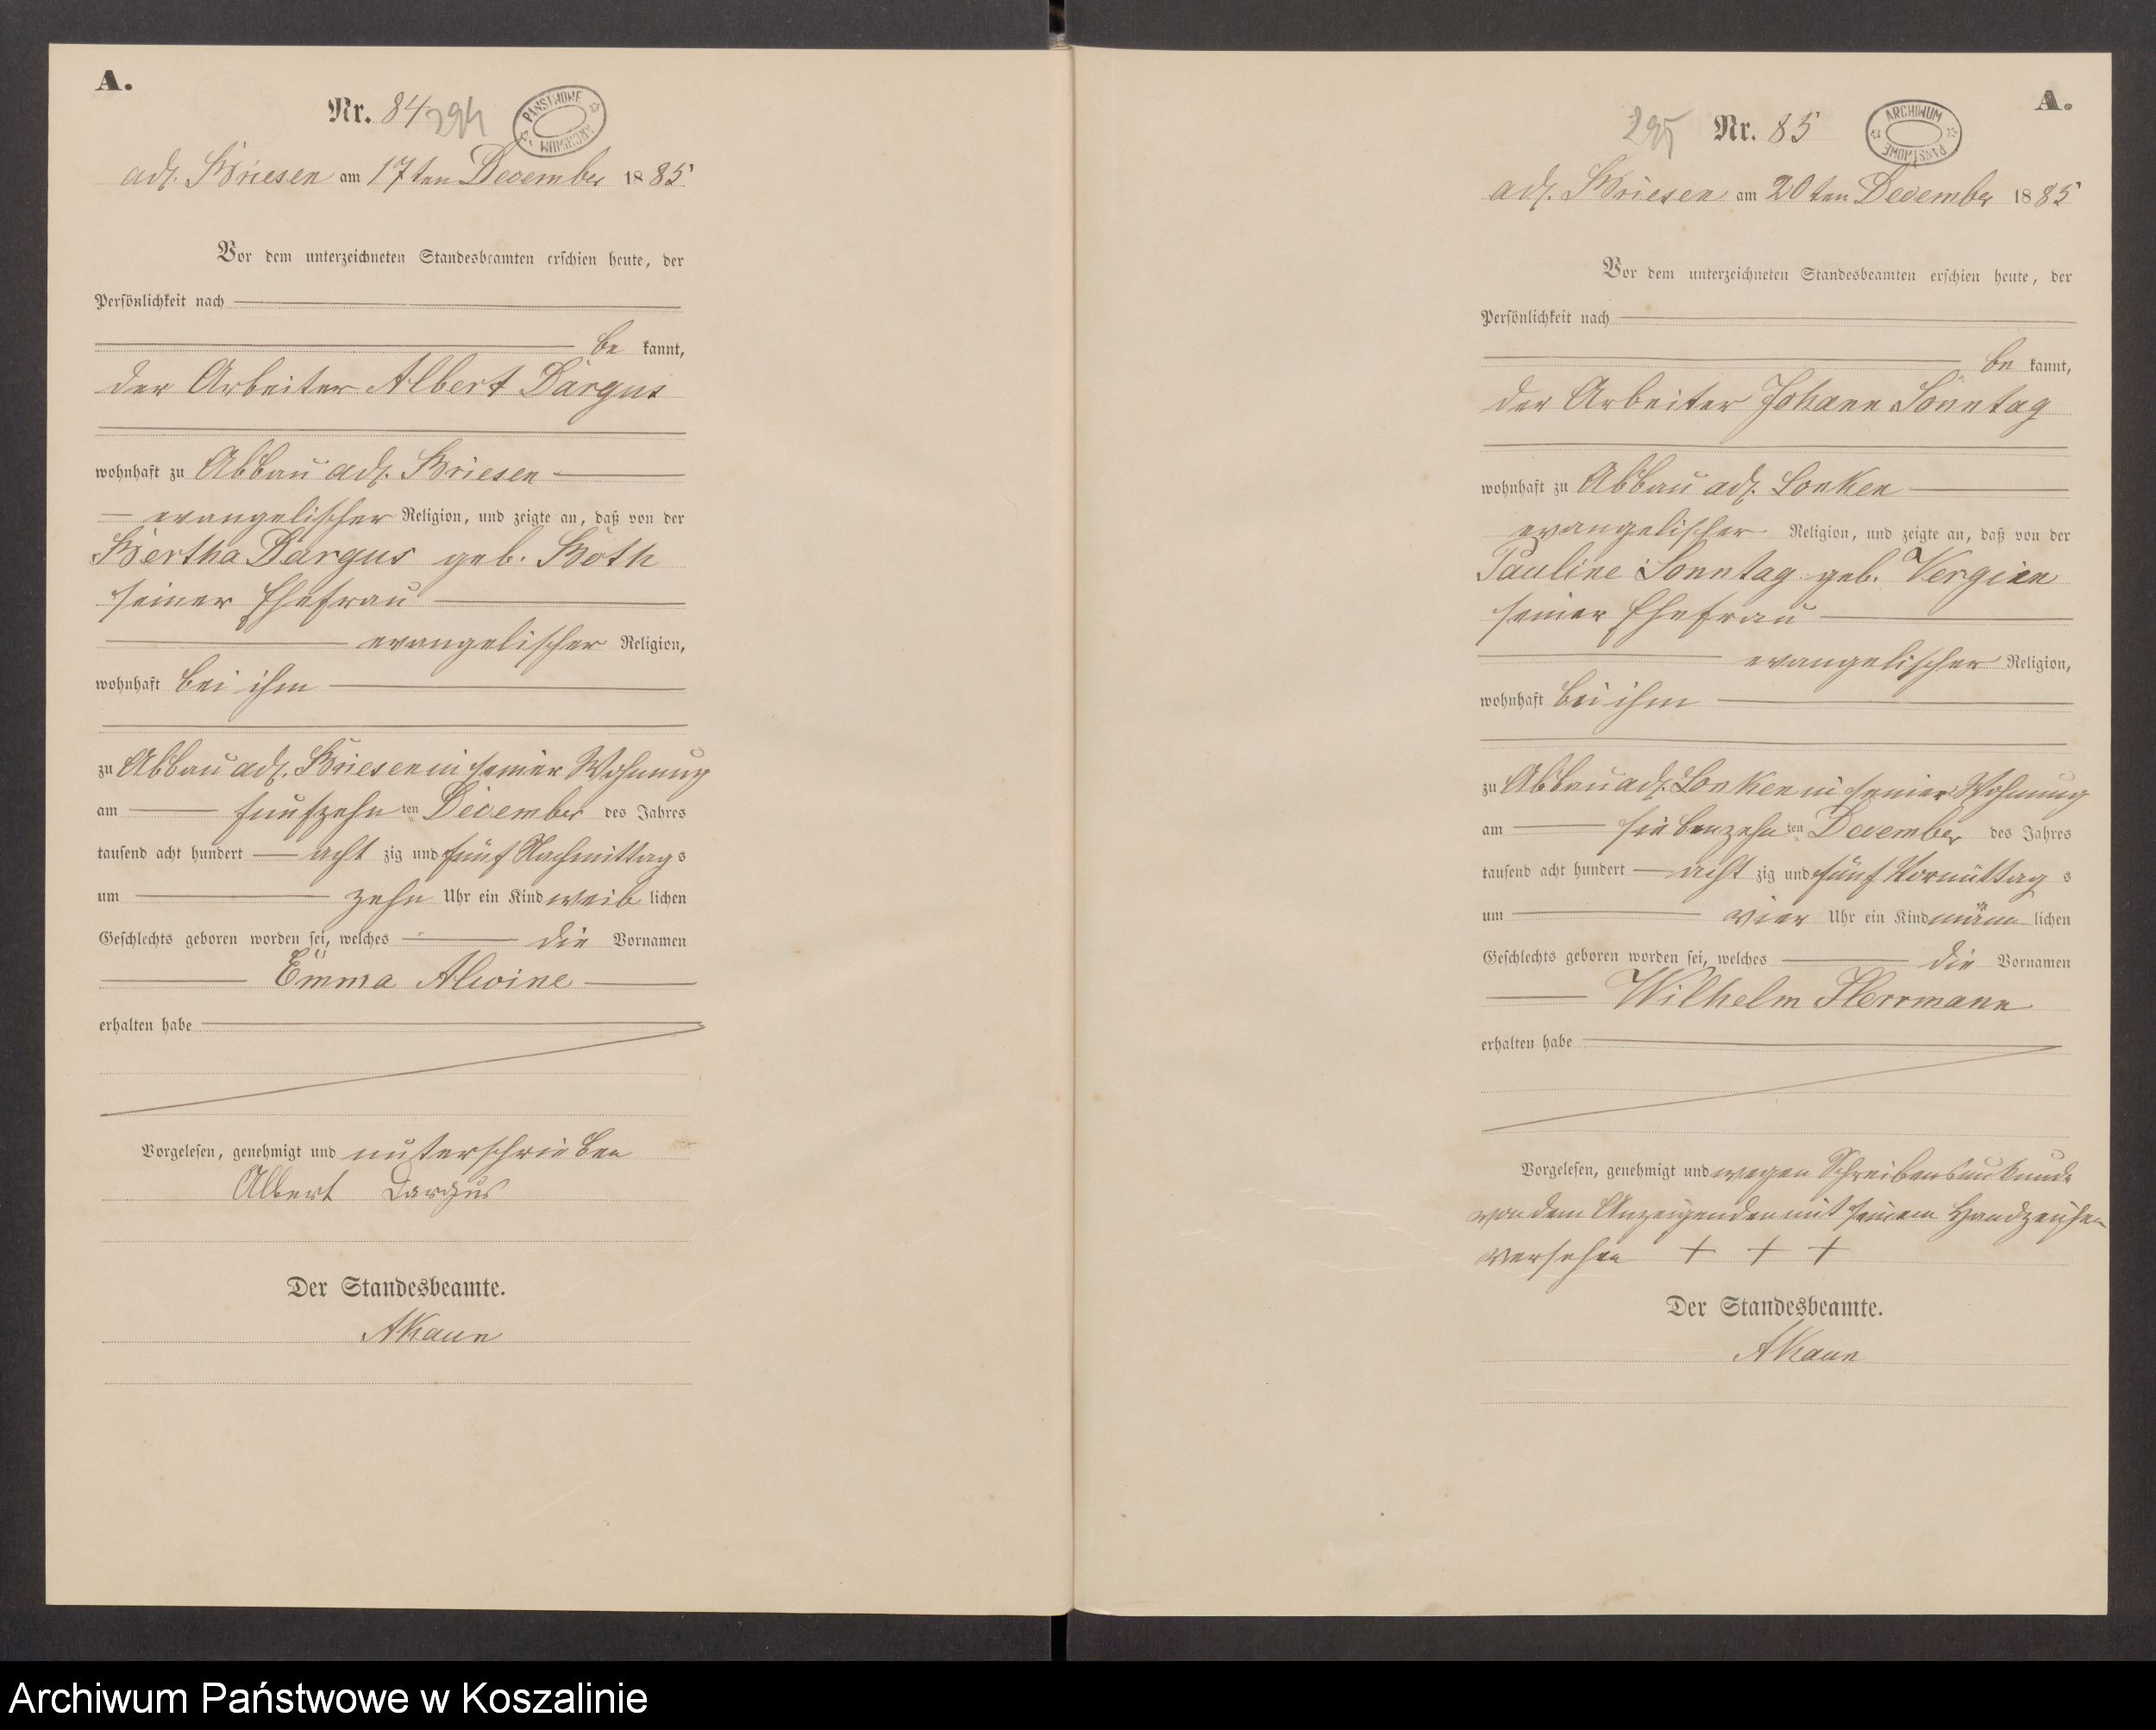 A.
Nr. 84 294
PAŃSTWOWE ARCHIWUM
adl. Briesen am 17ten December 1885
Vor dem unterzeichneten Standesbeamten erschien heute, der
Persönlichkeit nach
be kannt,
der Arbeiter Albert Dargus
wohnhaft zu Abbau adl. Briesen
evangelischer Religion, und zeigte an, daß von der
Bertha Dargus geb. Both
seiner Ehefrau
evangelischer Religion,
wohnhaft bei ihm
zu Abbau adl. Briesen in seiner Wohnung
am fünfzehn ten December des Jahres
tausend acht hundert acht zig und fünf Nachmittag s
um zehn Uhr ein Kind weib lichen
Geschlechts geboren worden sei, welches die Vornamen
Emma Alwine
erhalten habe
Vorgelesen, genehmigt und unterschrieben
Albert Dargus
Der Standesbeamte.
AKaun
A.
295 Nr. 85
ARCHIWUM PAŃSTWOWE
adl. Briesen am 20ten December 1885
Vor dem unterzeichneten Standesbeamten erschien heute, der
Persönlichkeit nach
be kannt,
der Arbeiter Johann Sonntag
wohnhaft zu Abbau adl. Lonken
evangelischer Religion, und zeigte an, daß von der
Pauline Sonntag geb. Vergien
seiner Ehefrau
evangelischer Religion,
wohnhaft bei ihm
zu Abbau adl. Lonken in seiner Wohnung
am siebenzehn ten December des Jahres
tausend acht hundert acht zig und fünf Vormittag s
um vier Uhr ein Kind männ lichen
Geschlechts geboren worden sei, welches die Vornamen
Wilhelm Herrmann
erhalten habe
Vorgelesen, genehmigt und wegen Schreibensunkunde
von dem Anzeigenden mit seinem Handzeichen
versehen + + +
Der Standesbeamte.
AKaun
Archiwum Państwowe w Koszalinie